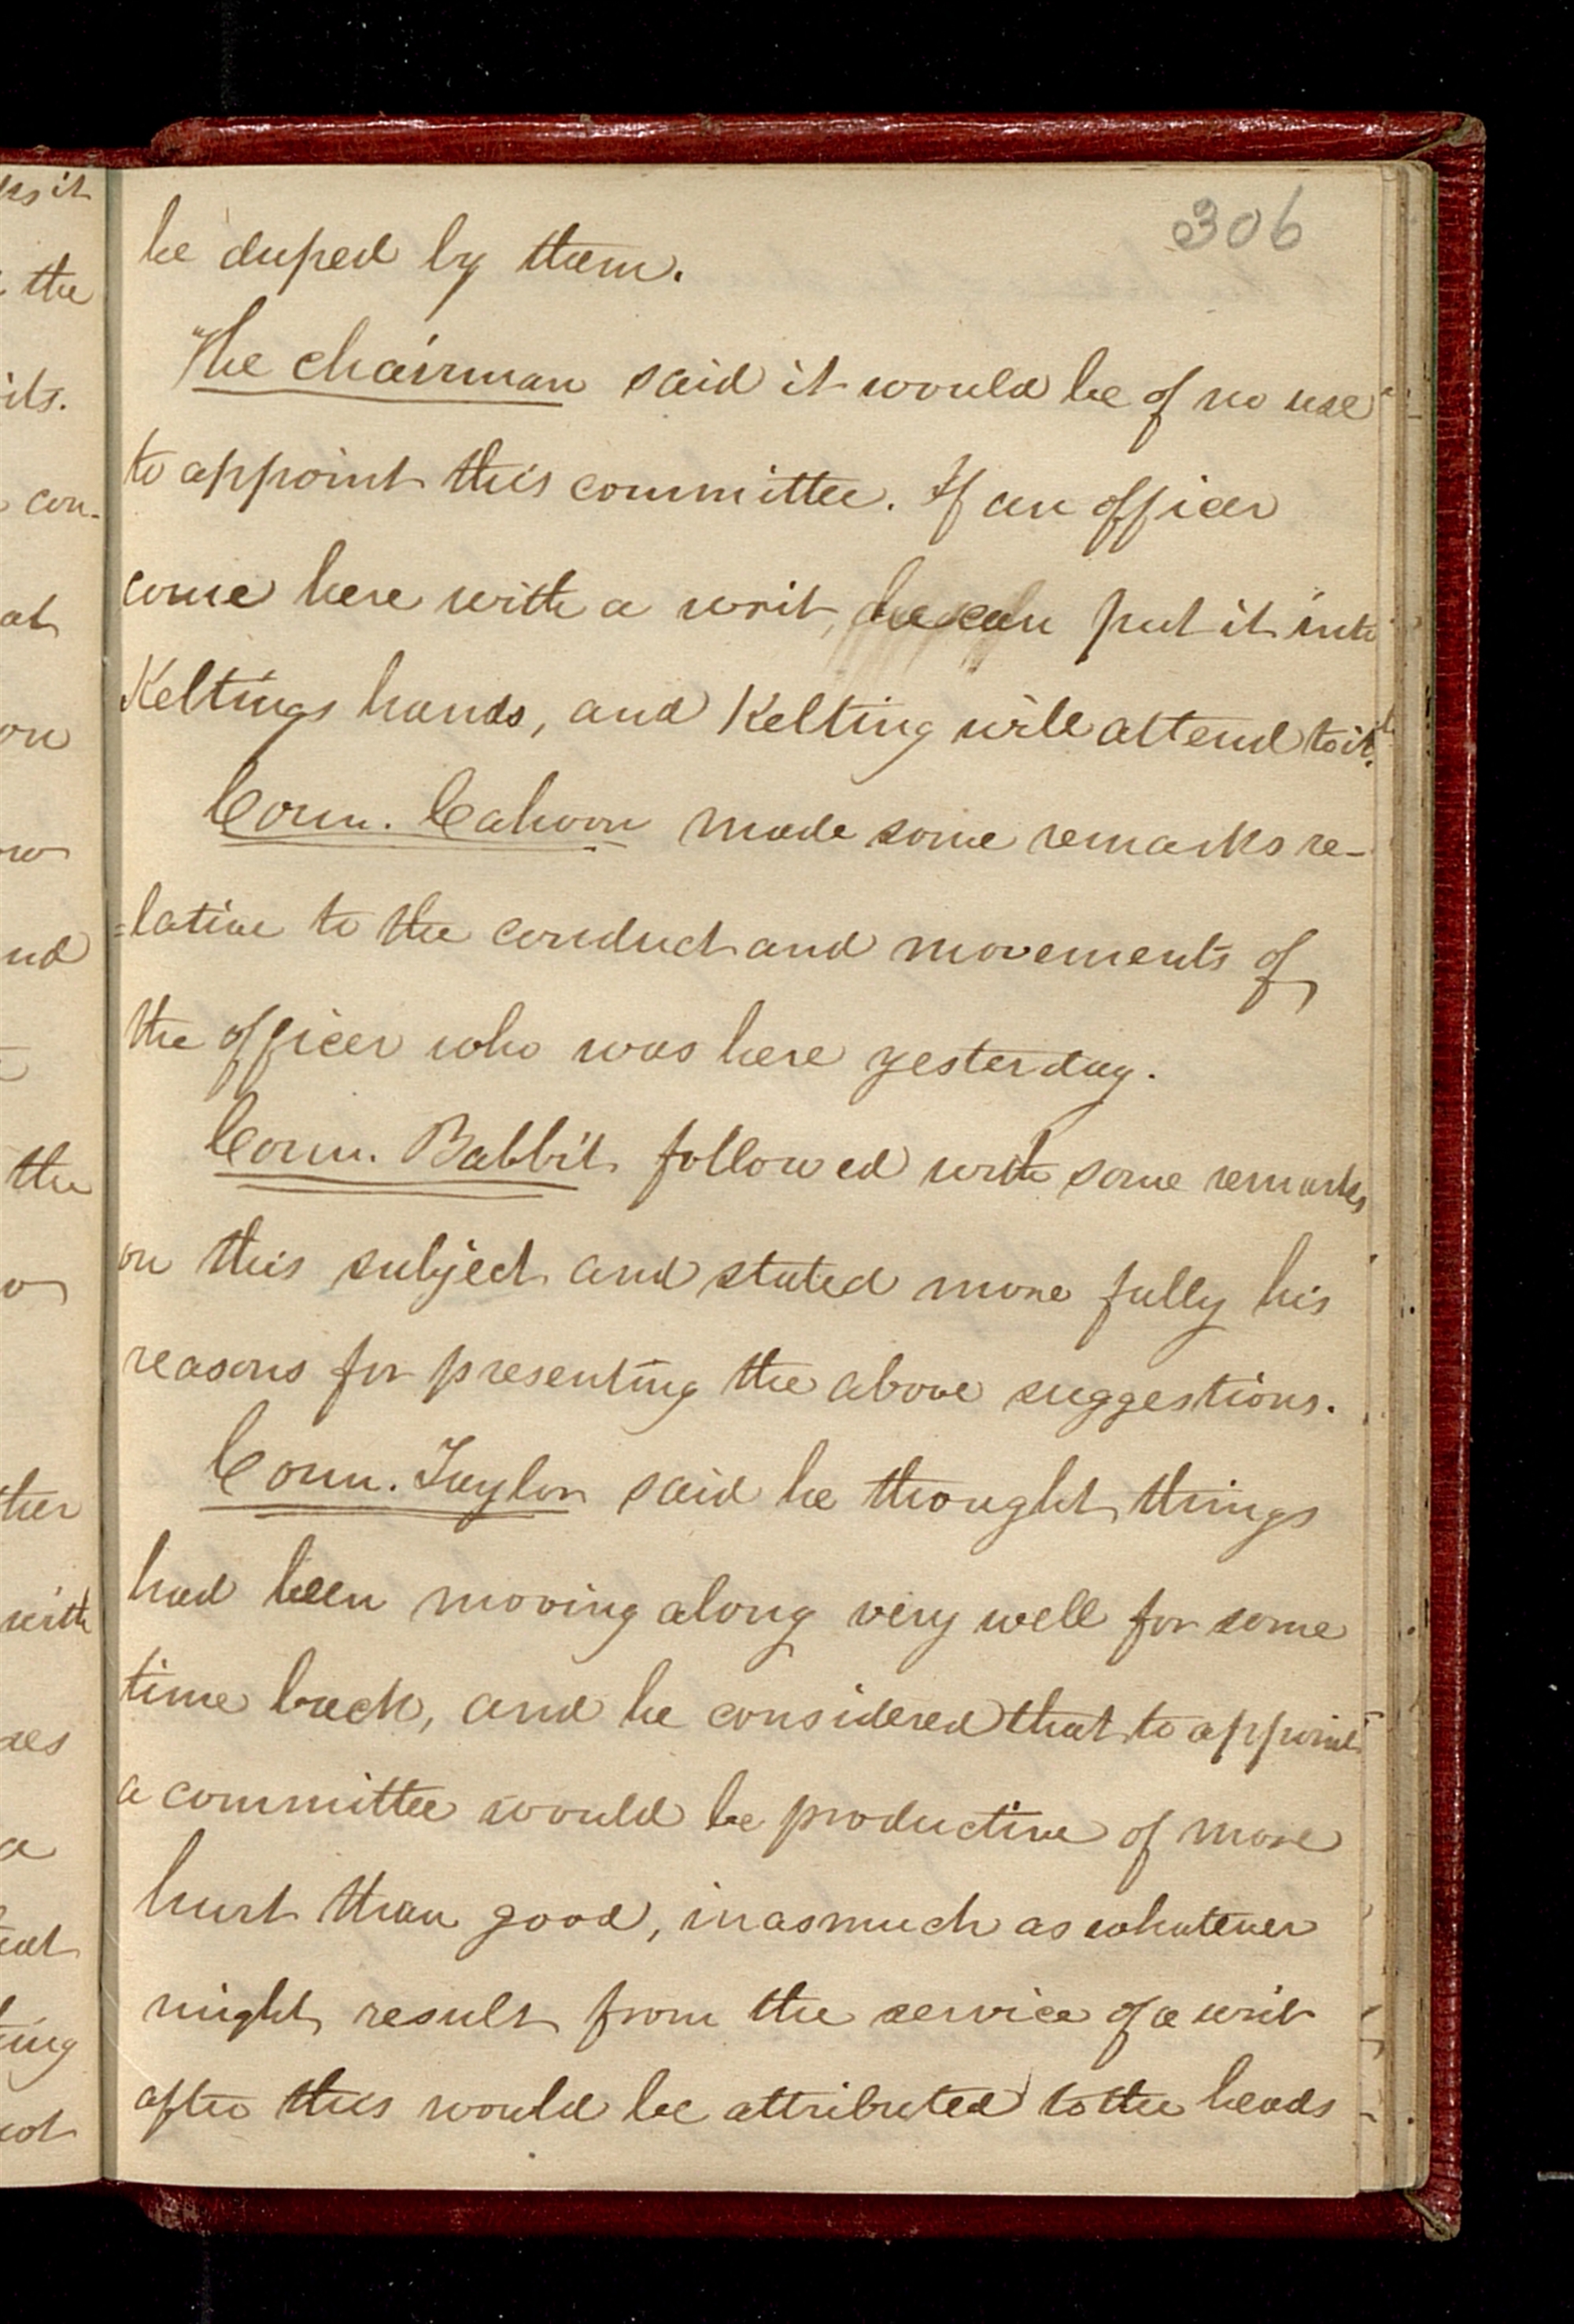 306
be duped by them.
The chairman said it would be of no use
to appoint this committee. If an officer
come here with a writ, he can put it into
Keltings hands, and Kelting will attend to it.
Coun. Cahoon made some remarks re-
=lative to the conduct and movements of
the officer who was here yesterday.
Coun. Babbit followed with some remarks
on this subject and stated more fully his
reasons for presenting the above suggestions.
Coun. Taylor said he thought things
had been moving along very well for some
time back, and he considered that to appoint
a committee would be productive of more
hurt than good, inasmuch as whatever
might result from the service of a writ
after this would be attributed to the heads
the
its.
con-
at
on
nd
the
ther
with